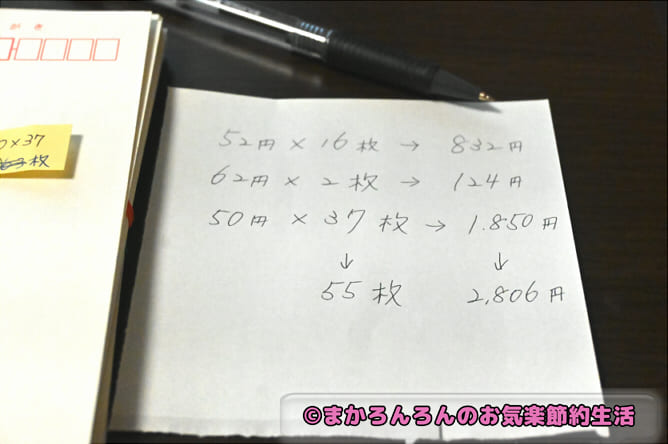 がき
×37
枚
52円 × 16枚 → 832円
62円 × 2枚 → 124円
50円 × 37枚 → 1.850円
↓ ↓
55枚 2,806円
©まかろんろんのお気楽節約生活